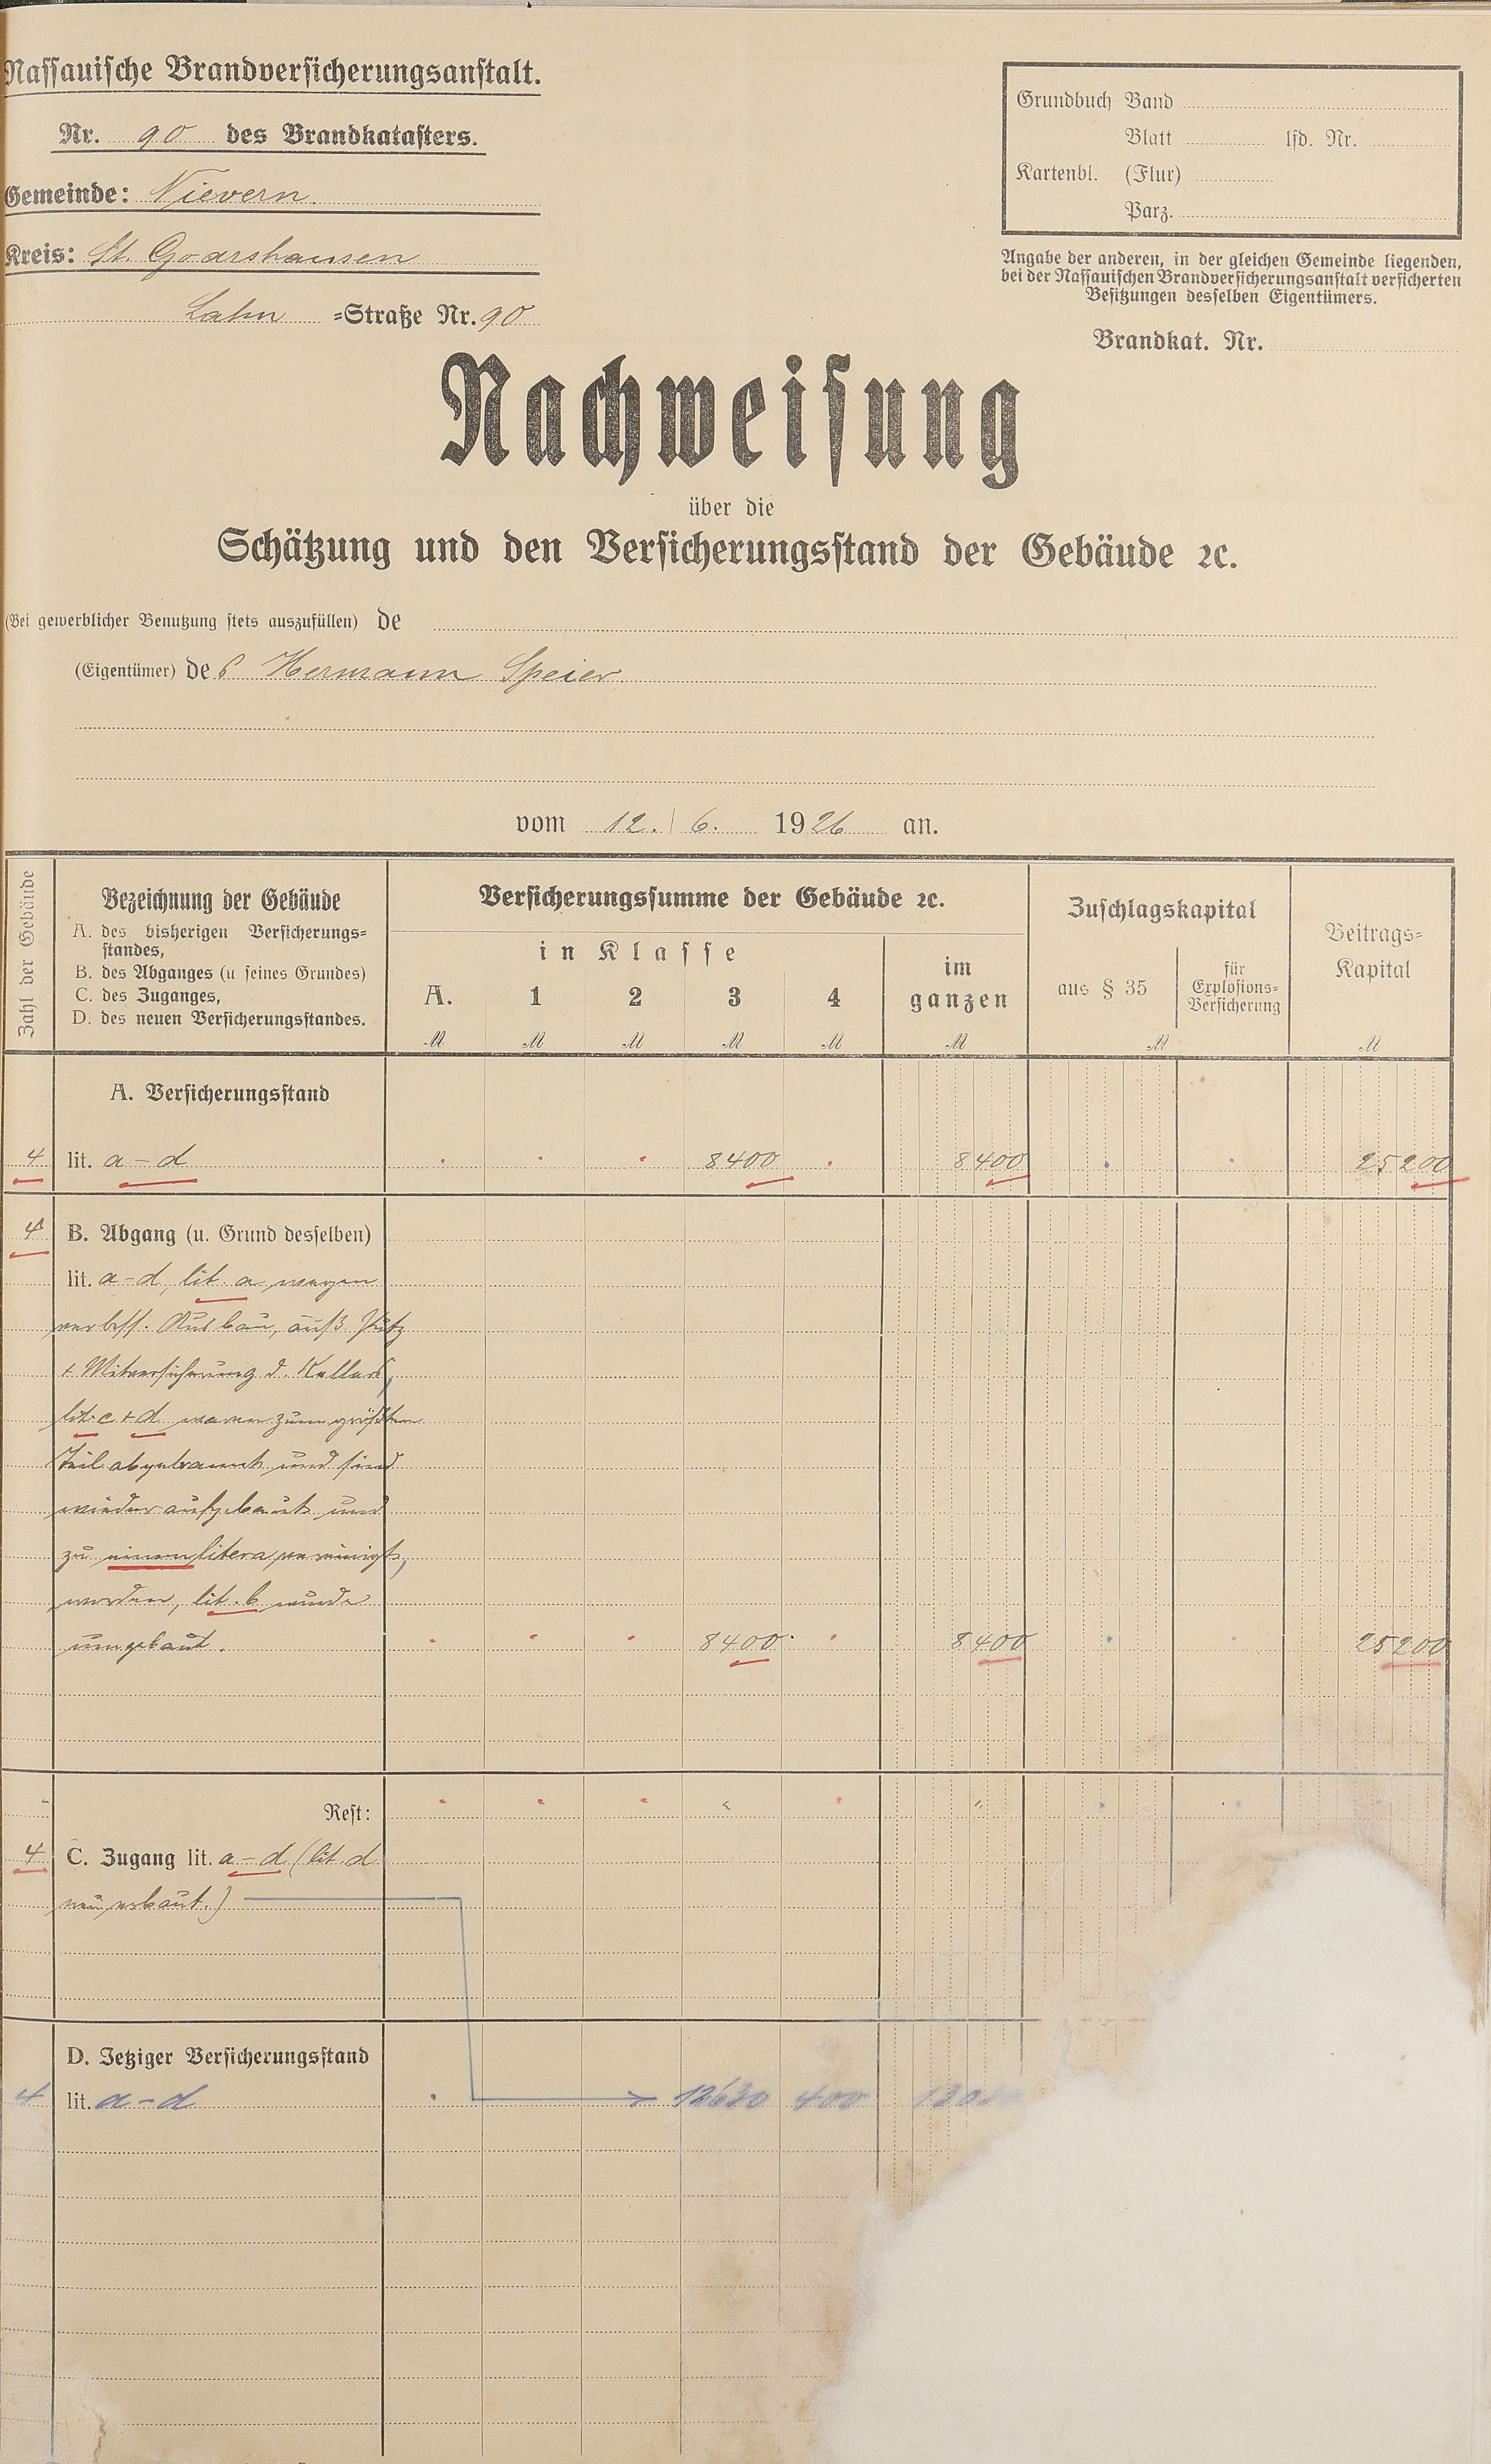 Nassauische Brandversicherungsanstalt.
Nr. 90 des Brandkatasters.
Gemeinde: Nievern.
Kreis: St. Goarshausen
Lahn =Straße Nr. 90
Grundbuch Band
Blatt lfd. Nr.
Kartenbl. (Flur)
Parz.
Angabe der anderen, in der gleichen Gemeinde liegenden,
bei der Nassauischen Brandversicherungsanstalt versicherten
Besitzungen desselben Eigentümers.
Brandkat. Nr.
Nachweisung
über die
Schätzung und den Versicherungsstand der Gebäude ꝛc.
(Bei gewerblicher Benutzung stets auszufüllen) de
(Eigentümer) des Hermann Speier.
vom 12. / 6. 1926 an.
Zahl der Gebäude
Bezeichnung der Gebäude
A. des bisherigen Versicherungs=
standes,
B. des Abganges (u seines Grundes)
C. des Zuganges,
D. des neuen Versicherungsstandes.
Versicherungssumme der Gebäude ꝛc.
in Klasse
A. 1 2 3 4
im
ganzen
Zuschlagskapital
aus § 35
für
Explosions=
Versicherung
Beitrags=
Kapital
M M M M M M M M
A. Versicherungsstand
4 lit. a – d 8400 8400 25200
4 B. Abgang (u. Grund desselben)
lit. a – d, lit. a wegen
verbess. Ausbau, äuß. Putz
+ Mitversicherung d. Kellers,
lit. c + d waren zum größten
Teil abgebrannt und sind
wieder aufgebaut und
zu einem litera vereinigt,
worden, lit. b wurde
umgebaut. 8400 8400 25200
Rest:
4 C. Zugang lit. a – d (lit. d
neu erbaut.)
D. Jetziger Versicherungsstand
4 lit. a – d 12630 400 130